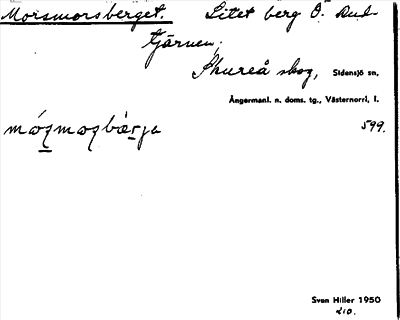 Morsmorsberget. Litet berg Ö. Rud-
tjärnen,
skog, Sidensjö sn,
Ångermanl. n. doms. tg., Västernorrl. l.
599.
Sven Hiller 1950
210.